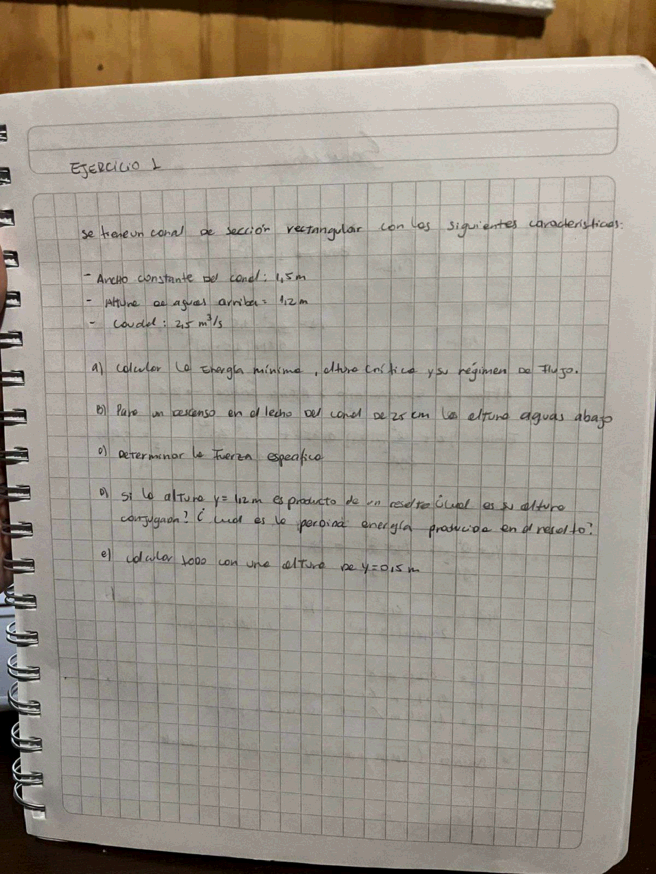 EJERCICIO 1
Se tiene un canal de sección rectangular con las siguientes características:
- Ancho constante del canal: 1,5 m
- Altura de aguas arriba = 1,2 m
- Caudal: 2,5 m³/s
a) Calcular la Energía mínima, altura crítica y su régimen de Flujo.
b) Para un descenso en el lecho del canal de 25 cm la altura aguas abajo
c) Determinar la Fuerza específica
d) Si la altura y = 1,2 m es producto de un resalto ¿Cual es su altura
conjugada? ¿Cual es la perdida energía producida en el resalto?
e) Calcular todo con una altura de y = 0,5 m